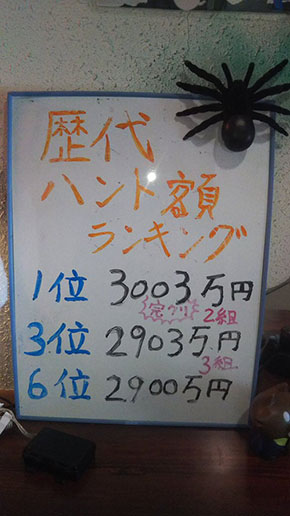 歴代
ハンド額
ランキング
1位 3003万円
完クリ 2組
3位 2903万円
3組
6位 2900万円